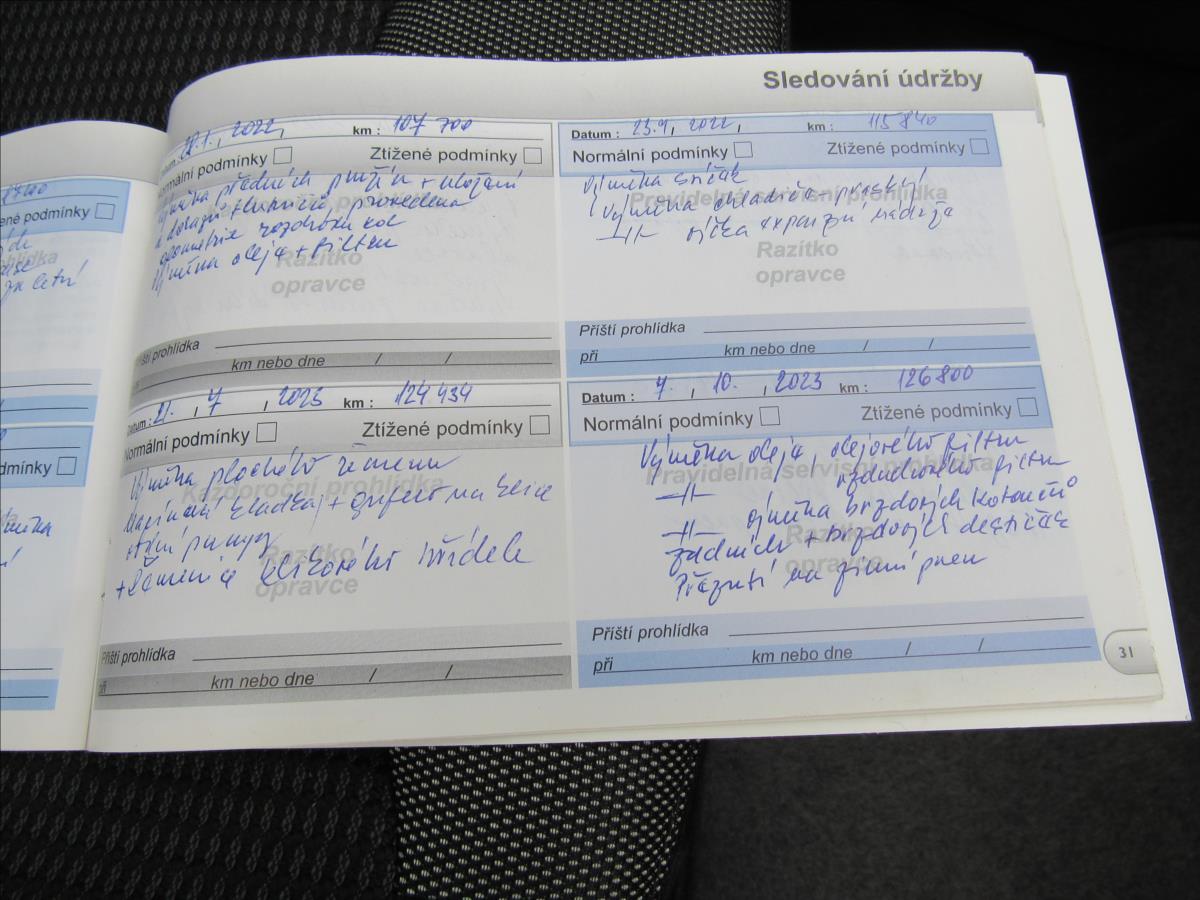 Sledování údržby
2022, km : 107 700
Normální podmínky Ztížené podmínky
Výměna předních pružin + uložení
a dorazů tlumičů provedena
geometrie rozdhozu kol
Výměna oleje + filtru
Razítko
opravce
Příští prohlídka
km nebo dne / /
Datum : 23.9, 2022, km : 115 840
Normální podmínky Ztížené podmínky
Pravidelná servisní prohlídka
Výměna svíček
Výměna chladiče
víčka expanzní nádrže
Razítko
opravce
Příští prohlídka
při km nebo dne / /
Datum : 21. , 7 , 2023 km : 124 434
Normální podmínky Ztížené podmínky
Každoroční prohlídka
Výměna plochého řemenu
Napínací kladka
+ řemenice klikového hřídele
Razítko
opravce
Příští prohlídka
při km nebo dne / /
Datum : 7. , 10. , 2023 km : 126 800
Normální podmínky Ztížené podmínky
Pravidelná servisní prohlídka
Výměna oleje, olejového filtru
vzduchového filtru
výměna brzdových kotoučů
zadních + brzdových destiček
Přezutí na zimní pneu
Razítko
opravce
Příští prohlídka
při km nebo dne / /
31
ené podmínky
za letní
dmínky